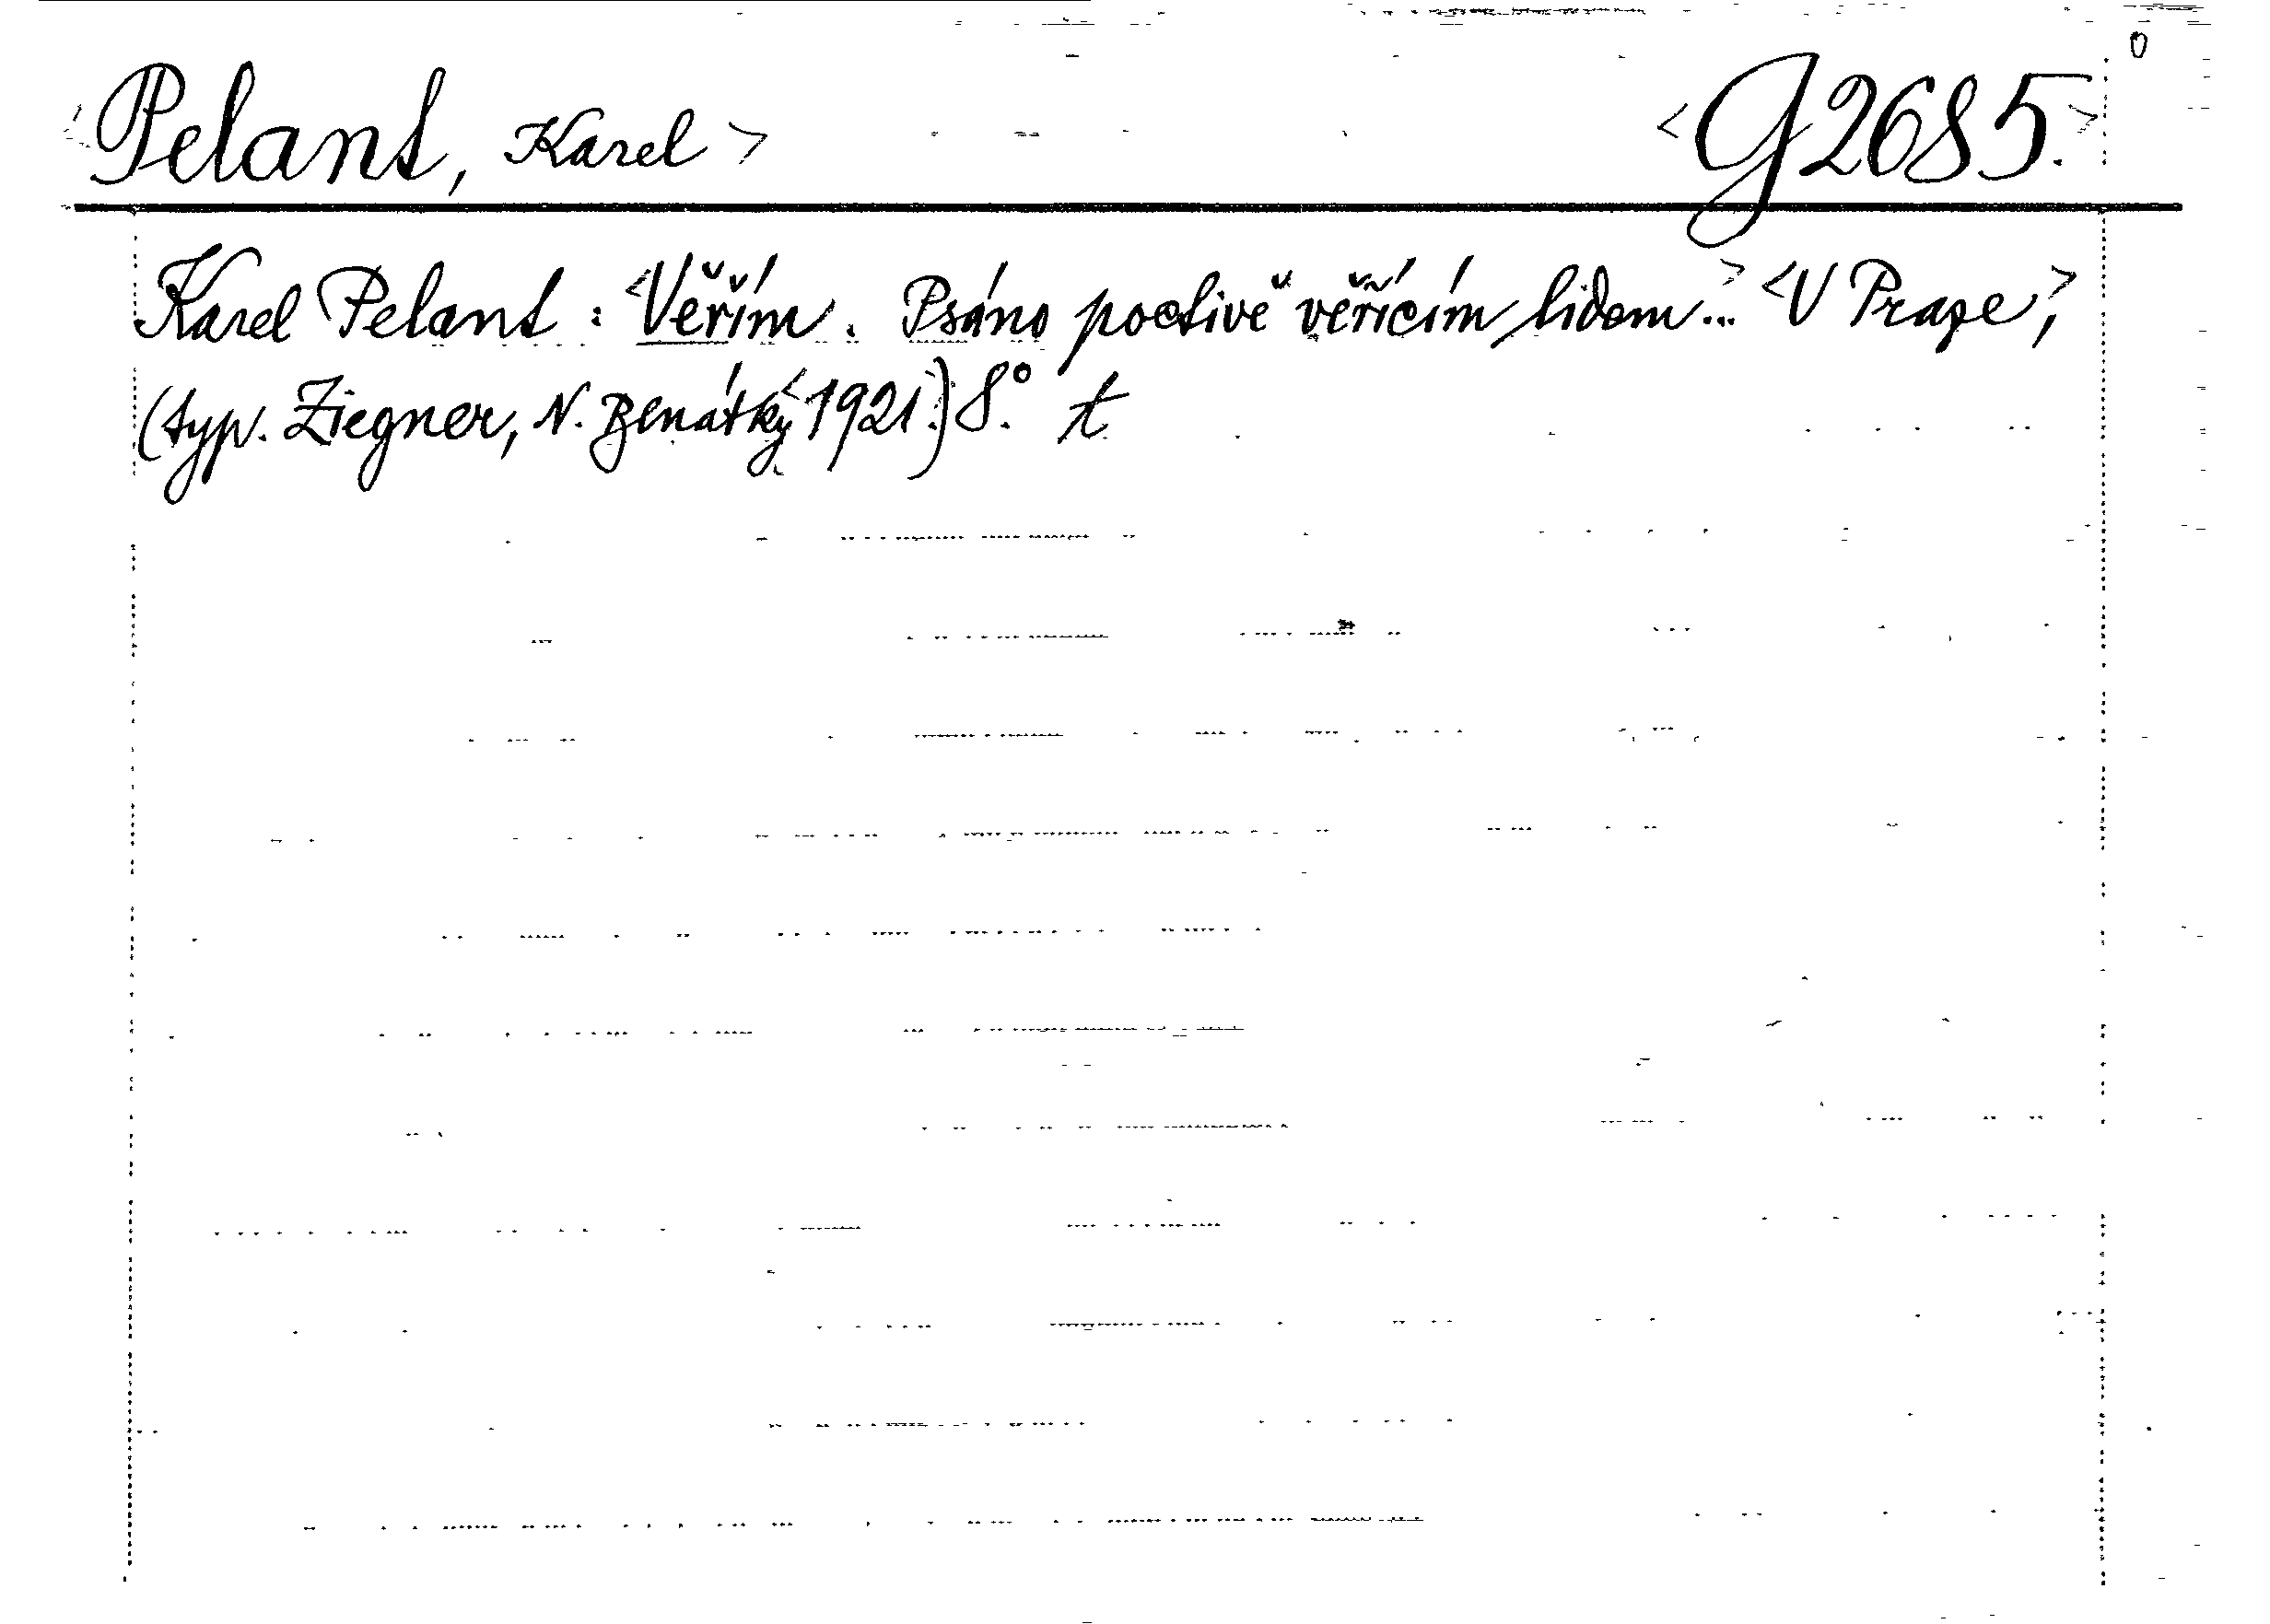 <Pelant, Karel> <G2685.>
Karel Pelant: <Věřím. Psáno poctivě věřícím lidem...> <V Praze,>
(typ. Ziegner, N. Benátky <1921.) 8.° t